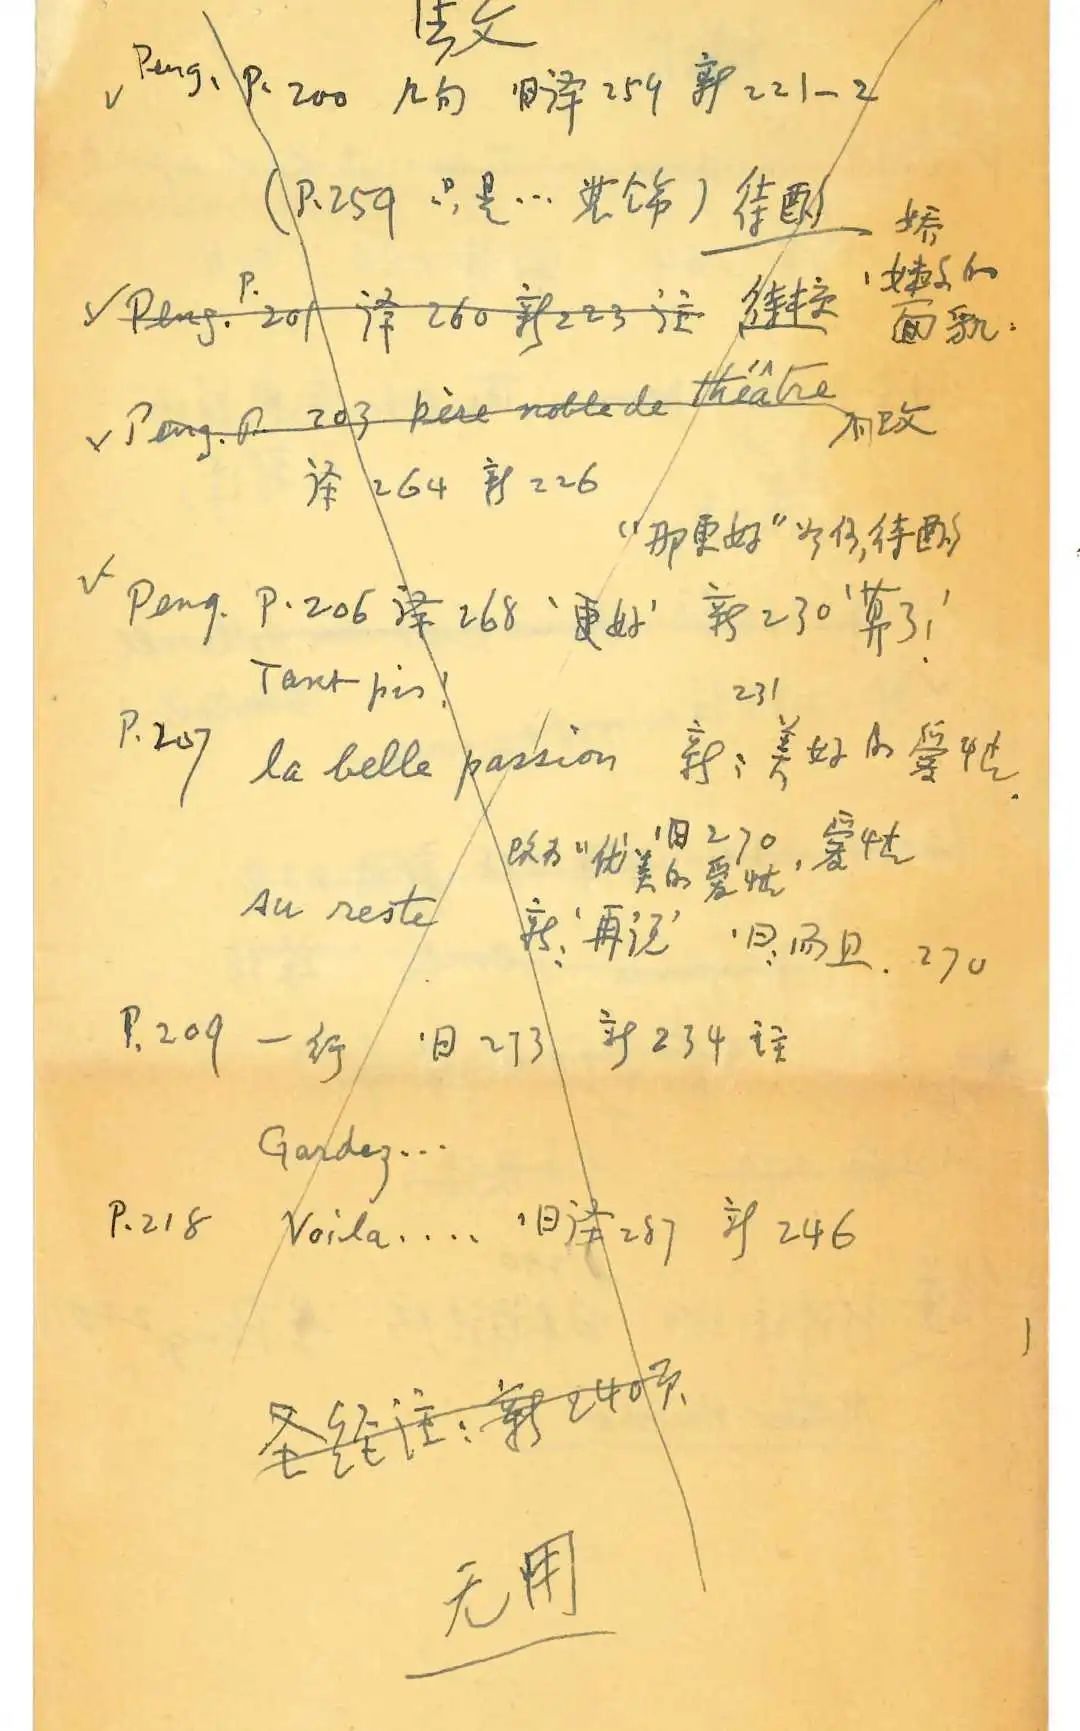 ✓ Peng. P. 200 几句 旧译259 新221-2
(P.259 只是… 装饰) 待酌
✓ Peng. P. 201 译260 新223注 待校 '娇嫩的面貌.
✓ Peng. P. 203 père noble de théâtre 有改
译264 新226
"那更好"
待酌
✓ Peng. P. 206 译268 '更好' 新230 '算了!'
Tant pis!
P.207 la belle passion 新: 美好的爱情. 231
改为"优美的爱情' 旧270, 爱情
Au reste 新: '再说' 旧: 而且. 270
P. 209 一行 旧273 新234注
Gardez...
P. 218 Voila..... 旧译287 新246
圣经注: 新240页
无用